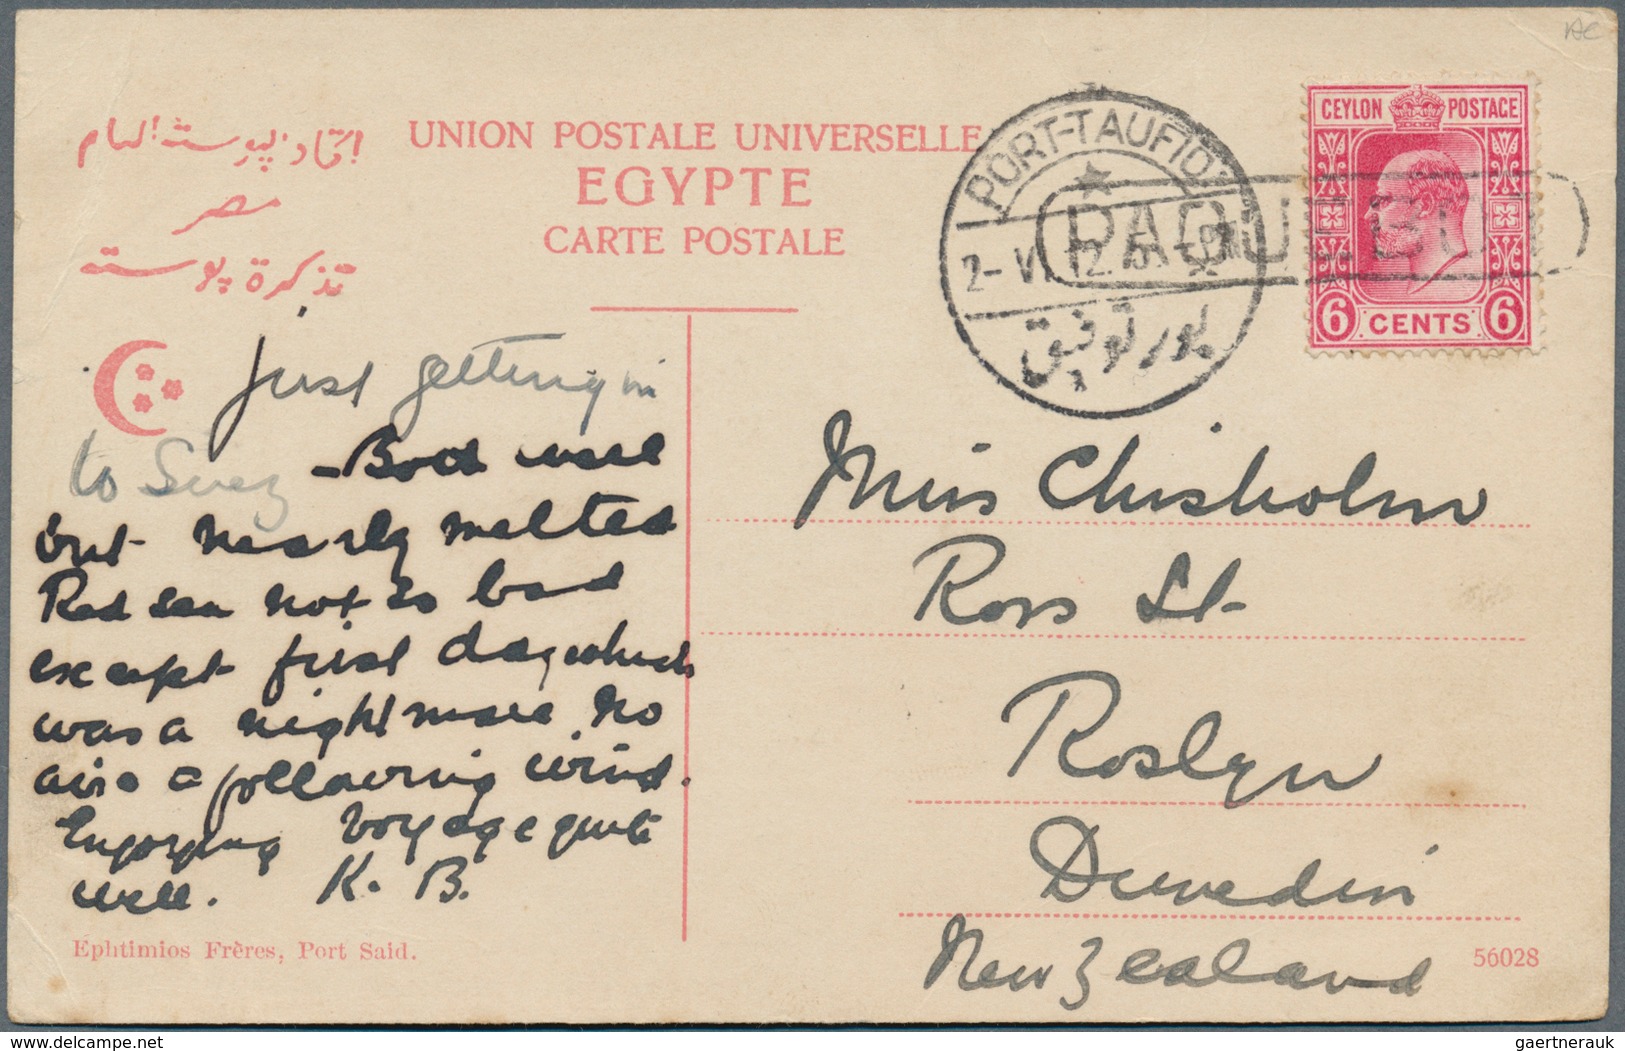 AC
UNION POSTALE UNIVERSELLE
EGYPTE
CARTE POSTALE
اتحاد پوستة العام
مصر
تذكرة پوستة
PORT-TAUFIQ
2- VI 12
بور توفيق
PAQUEBOT
CEYLON POSTAGE
6 CENTS 6
just getting in
to Suez - Both well
but nearly melted
Red sea not so bad
except first day which
was a nightmare no
air & following wind.
Enjoying voyage quite
well. K. B.
Miss Chisholm
Ross St
Roslyn
Dunedin
New Zealand
Ephtimios Frères, Port Said.
56028
www.delcampe.net
gaertnerauk